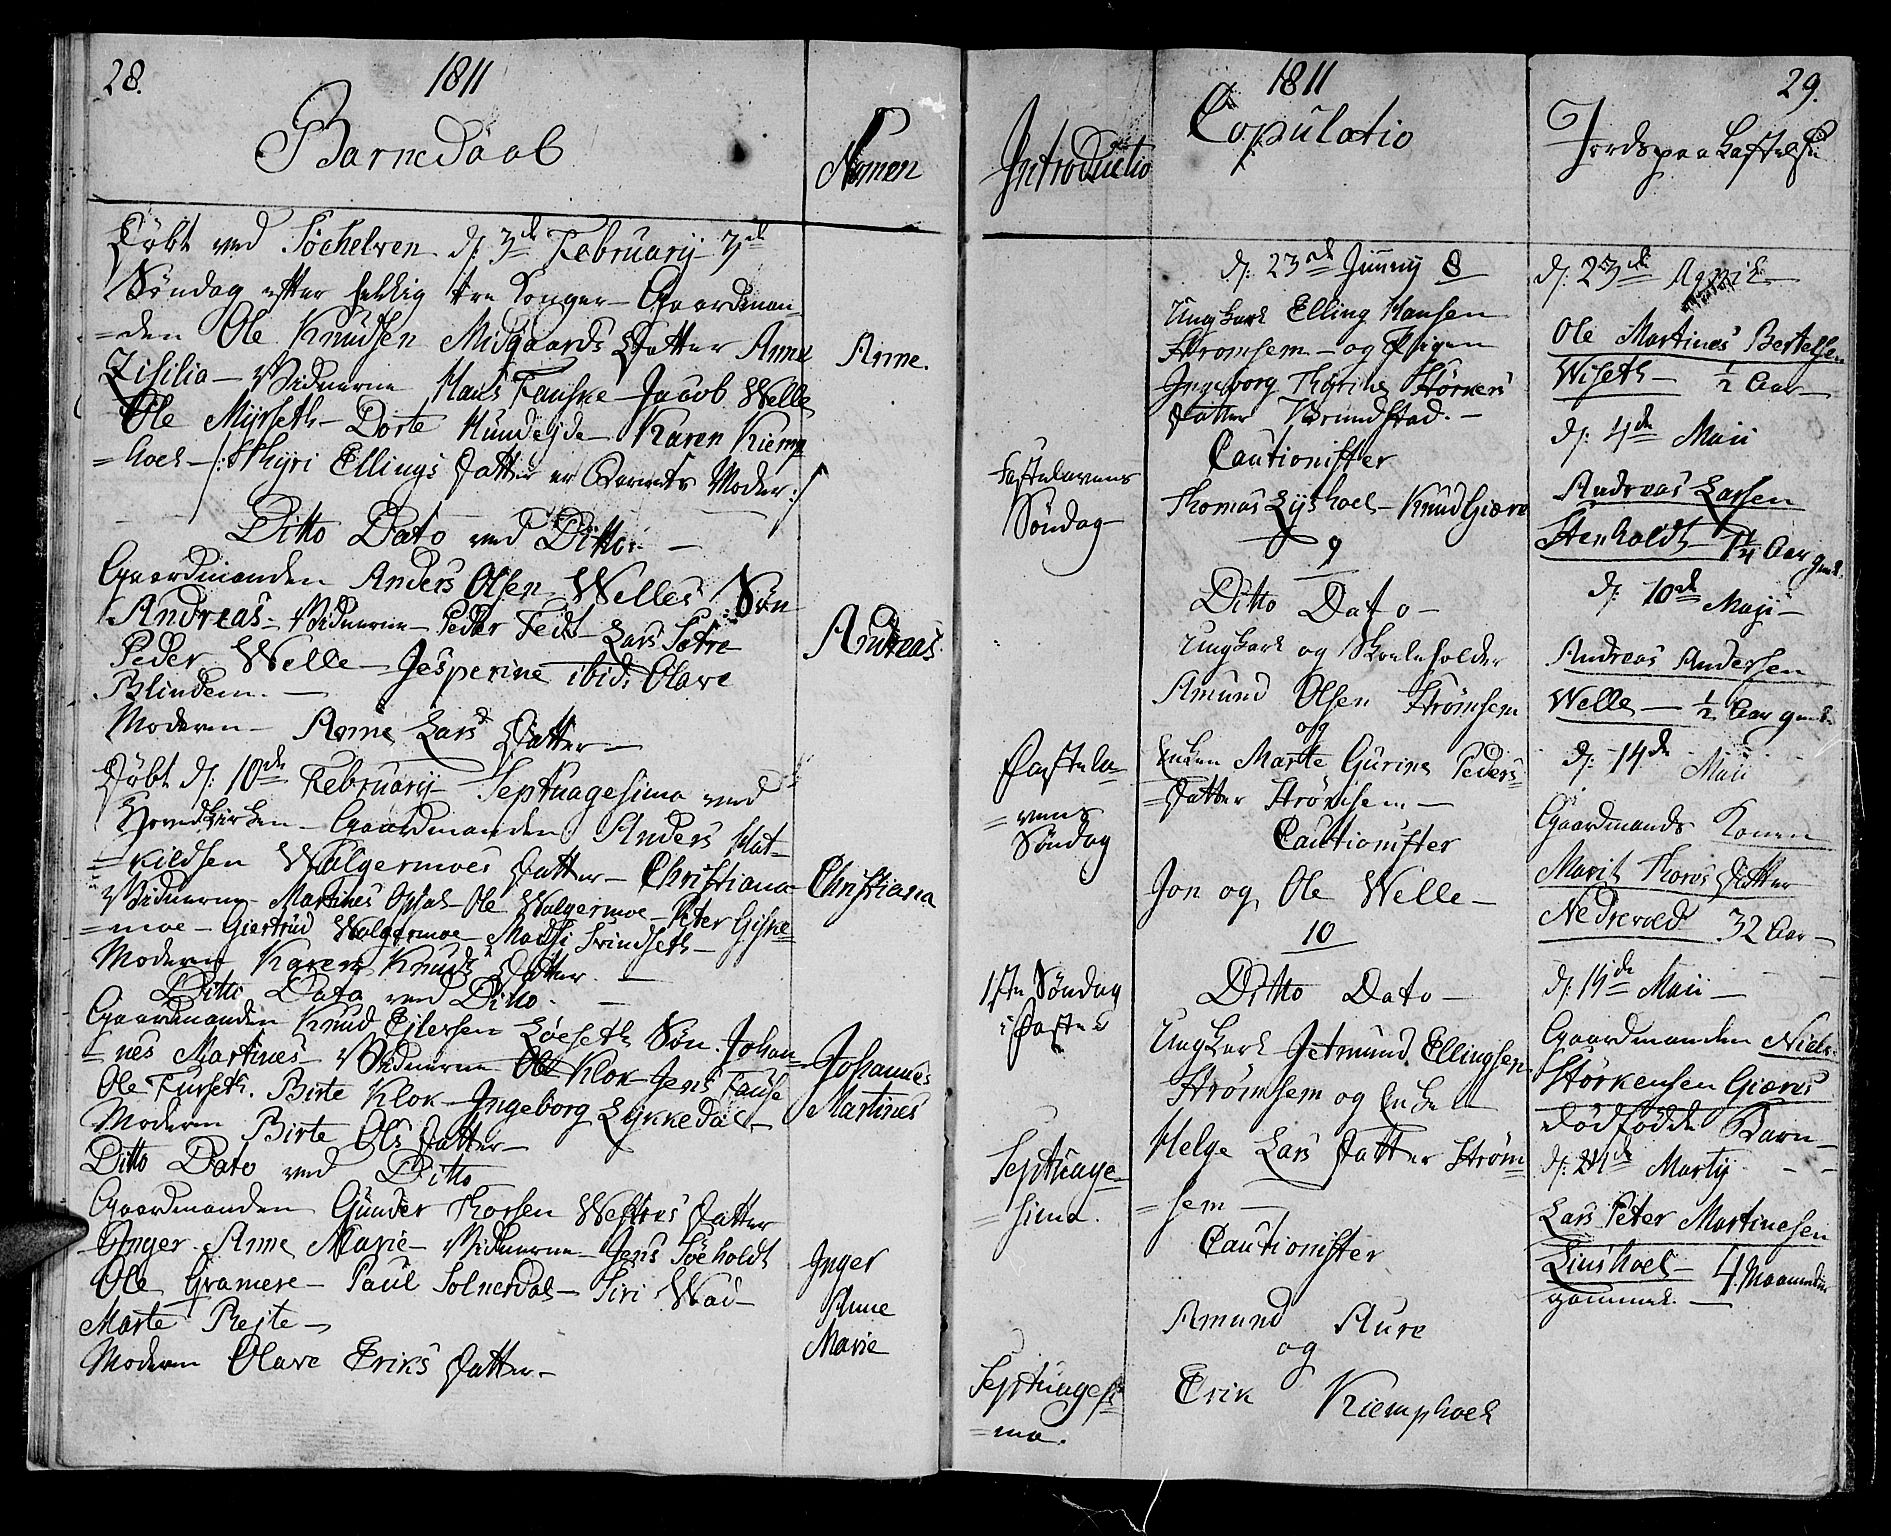 28.
1811
Barnedaab
Nomen
Døbt ved Søehelven d: 3de Februarij 4de
Søndag efter hellig tre Konger - Gaardman=
=den Ole Knudsen Midgaards Datter Anne
Zisilia - Vidnerne Hans Fauske Jacob Welle
Ole Myrseth - Dorte Hundejde Karen Kiemp
=hoel - /: Thyri Ellings Datter er Barnets Moder :/
Anne.
Ditto Dato ved Ditto. -
Gaardmanden Anders Olsen Welles Søn
Andreas - Vidnerne - Peder Fedt Lars Sætre
Peder Welle - Jesperine ibid: Olave
Blindem. -
Moderen - Anne Lars Datter -
Andreas.
Døbt d: 10de Februarij Septuagesima ved
Hovedkirken - Gaardmanden Anders Hal-
=kildsen Walgermoes Datter - Christiana -
Vidnerne - Martines Opsal - Ole Walgermoe - Peter Giske=
=moe - Giertrud Walgermoe - Madsi Svindseth -
Moderen Karen Knuds Datter. -
Christiana
Ditto Dato ved Ditto. -
Gaardmanden Knud Eilersen Løeseth Søn Johan=
=nes Martines - Vidnerne Ole Klok - Jens Fauske
Ole Furseth. Birte Klok - Ingeborg Lykkedal -
Moderen Birte Ols Datter -
Johannes
Martines
Ditto Dato ved Ditto
Gaardmanden Gunder Thorsen Westres Datter
Inger Anne Marie - Vidnerne - Jens Søeholdt
Ole Gramere - Paul Solnerdal - Siri Wad -
Marte Rejte -
Moderen Olave Eriks Datter. -
Inger
Anne
Marie
Introductio
Fastelavens
Søndag
Fastela=
=vens
Søndag
1ste Søndag
i Faste
Septuage=
=sima.
Septuagesi=
=ma.
1811
Copulatio
d: 23de Junij 8
Ungkarl Elling Hansen
Strømsem - og Pigen
Ingeborg Thyrine Størkers
Datter Brundstad. -
Cautionister
Thomas Lyshoel - Knud Giære
9
Ditto Dato -
Ungkarl og Skoleholder
Amund Olsen Strømsem
og
Enken Marte Gurine Peders=
=Datter Strømsem -
Cautionister
Jon og Ole Welle -
10
Ditto Dato -
Ungkarl Jetmund Ellingsen
Strømsem og Enke
Helge Lars Datter Strøm=
=sem -
Cautionister
Amund Aure
og
Erik Kiemphoel
29.
Jordspaakastelse
d: 23de April
Ole Martines Bertelsen
Wiseth - 1/2 Aar -
d: 4de Maii
Andreas Larsen
Stenholdt 1 1/4 Aar gml.
d: 10de Maji -
Andreas Andersen
Welle - 1/2 Aar gml.
d: 14de Maii
Gaardmands Konen
Marit Thores Datter
Nedrevold 32 Aar -
d: 19de Maii -
Gaardmanden Niels
Størkersen Giæres
dødfødde Barn -
d: 24de Martij
Lars Peter Martinesen
Liushoel - 4 Maaneder
gammel. -